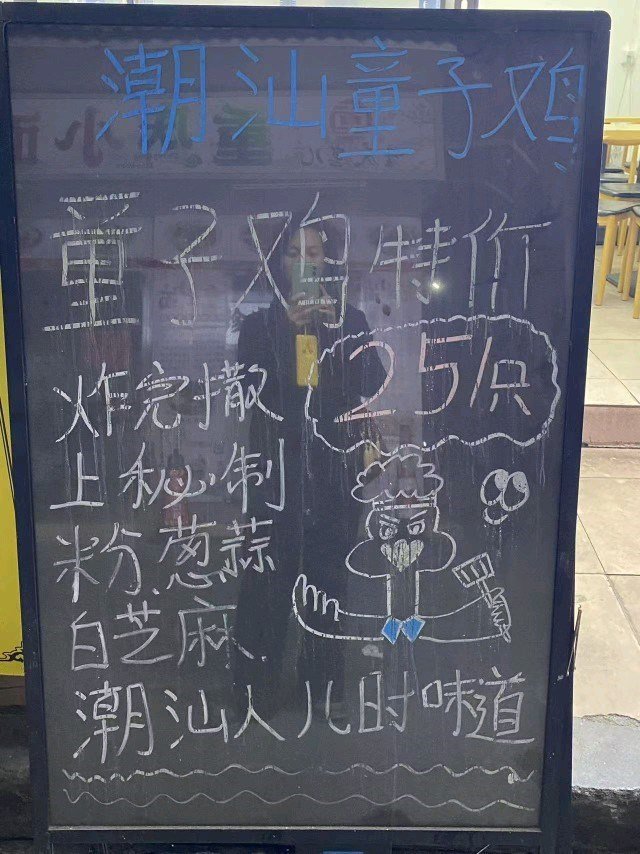 潮汕童子鸡
童子鸡特价
25/只
炸完撒
上秘制
粉.葱蒜
白芝麻.
潮汕人儿时味道